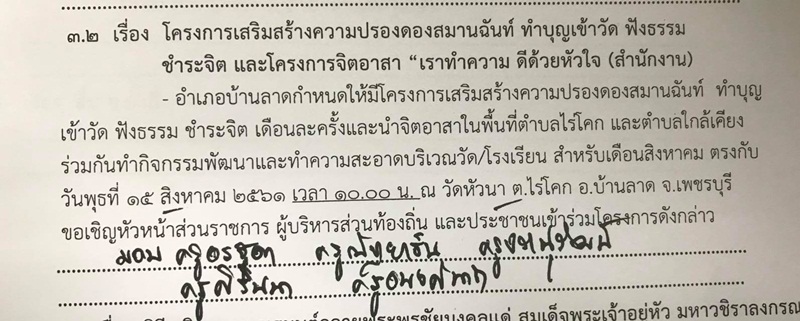 ๓.๒ เรื่อง โครงการเสริมสร้างความปรองดองสมานฉันท์ ทำบุญเข้าวัด ฟังธรรม
ชำระจิต และโครงการจิตอาสา "เราทำความ ดีด้วยหัวใจ (สำนักงาน)
- อำเภอบ้านลาดกำหนดให้มีโครงการเสริมสร้างความปรองดองสมานฉันท์ ทำบุญ
เข้าวัด ฟังธรรม ชำระจิต เดือนละครั้งและนำจิตอาสาในพื้นที่ตำบลไร่โคก และตำบลใกล้เคียง
ร่วมกันทำกิจกรรมพัฒนาและทำความสะอาดบริเวณวัด/โรงเรียน สำหรับเดือนสิงหาคม ตรงกับ
วันพุธที่ ๑๕ สิงหาคม ๒๕๖๑ เวลา ๑๐.๐๐ น. ณ วัดหัวนา ต.ไร่โคก อ.บ้านลาด จ.เพชรบุรี
ขอเชิญหัวหน้าส่วนราชการ ผู้บริหารส่วนท้องถิ่น และประชาชนเข้าร่วมโครงการดังกล่าว
มอบ ครู ครู ครู
ครู ครู
สมเด็จพระเจ้าอยู่หัว มหาวชิราลงกรณ